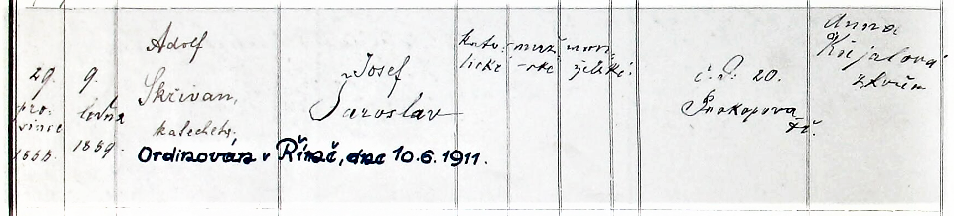 29. pro-
since
1888.
9. ledna
1889.
Adolf
Skřivan,
katecheta,
Josef
Jaroslav
kato-
lické
muž-
ské
man-
želské
č. d. 20.
Prokopova
tř.
Anna
Ordinován v Římě, dne 10.6.1911.